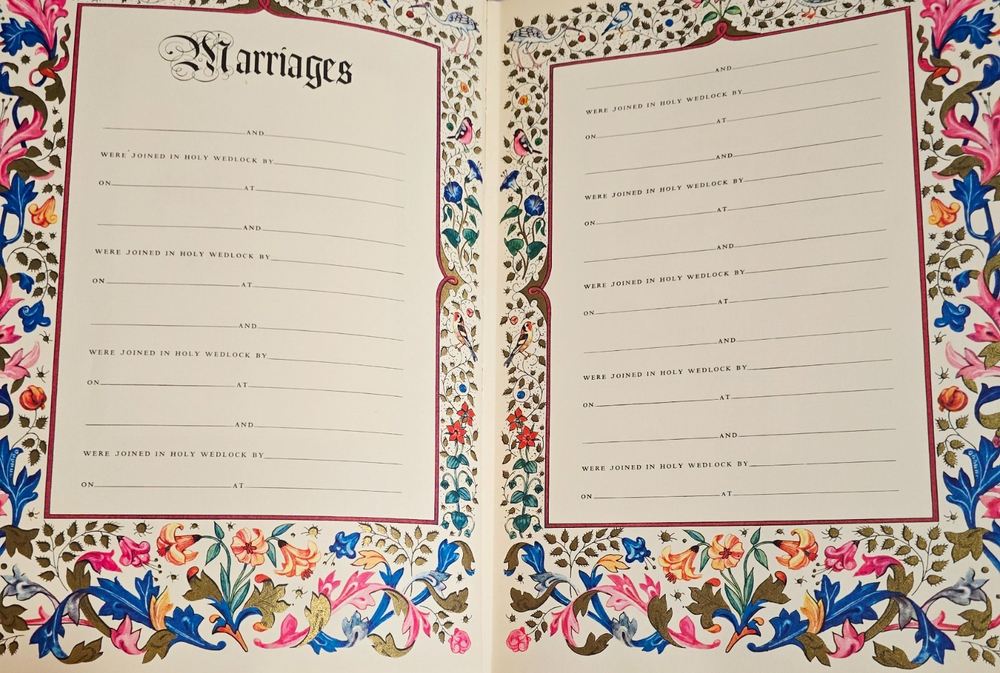 Marriages
AND
WERE JOINED IN HOLY WEDLOCK BY
ON AT
AND
WERE JOINED IN HOLY WEDLOCK BY
ON AT
AND
WERE JOINED IN HOLY WEDLOCK BY
ON AT
AND
WERE JOINED IN HOLY WEDLOCK BY
ON AT
AND
WERE JOINED IN HOLY WEDLOCK BY
ON AT
AND
WERE JOINED IN HOLY WEDLOCK BY
ON AT
AND
WERE JOINED IN HOLY WEDLOCK BY
ON AT
AND
WERE JOINED IN HOLY WEDLOCK BY
ON AT
AND
WERE JOINED IN HOLY WEDLOCK BY
ON AT